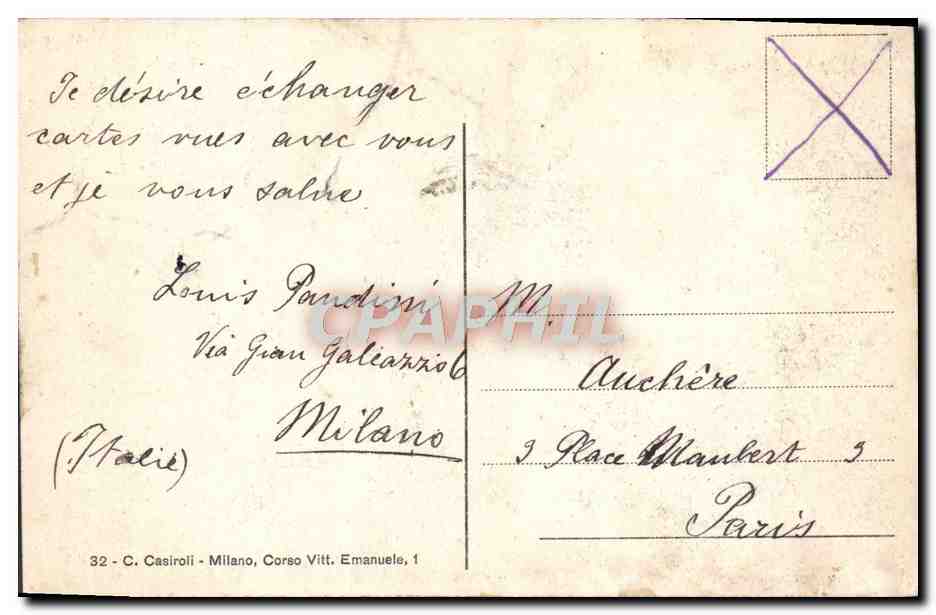 Je désire échanger
cartes vues avec vous
et je vous salue
Louis Pandini
Via Gian Galeazzo 6
Milano
(Italie)
32 - C. Casiroli - Milano, Corso Vitt. Emanuele, 1
M.
Auchère
3 Place Maubert 3
Paris
CPAPHIL